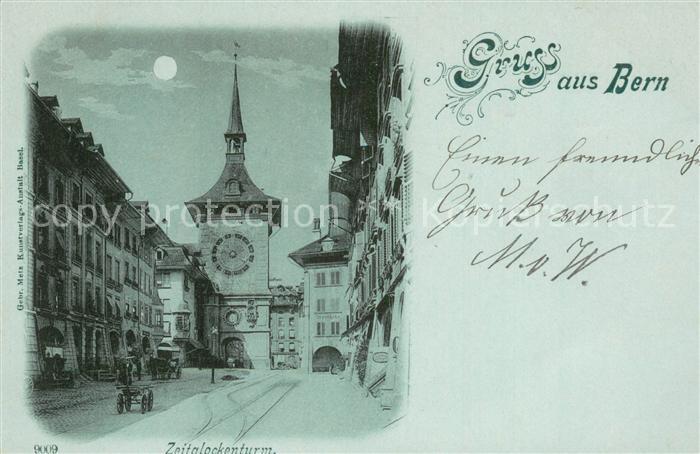 Gruss
aus Bern
Einen freundlich
Gruß von
M. v. W.
Gebr. Metz Kunstverlags-Anstalt Basel.
copy protection ** copy schutz
9009
Zeitglockenturm.